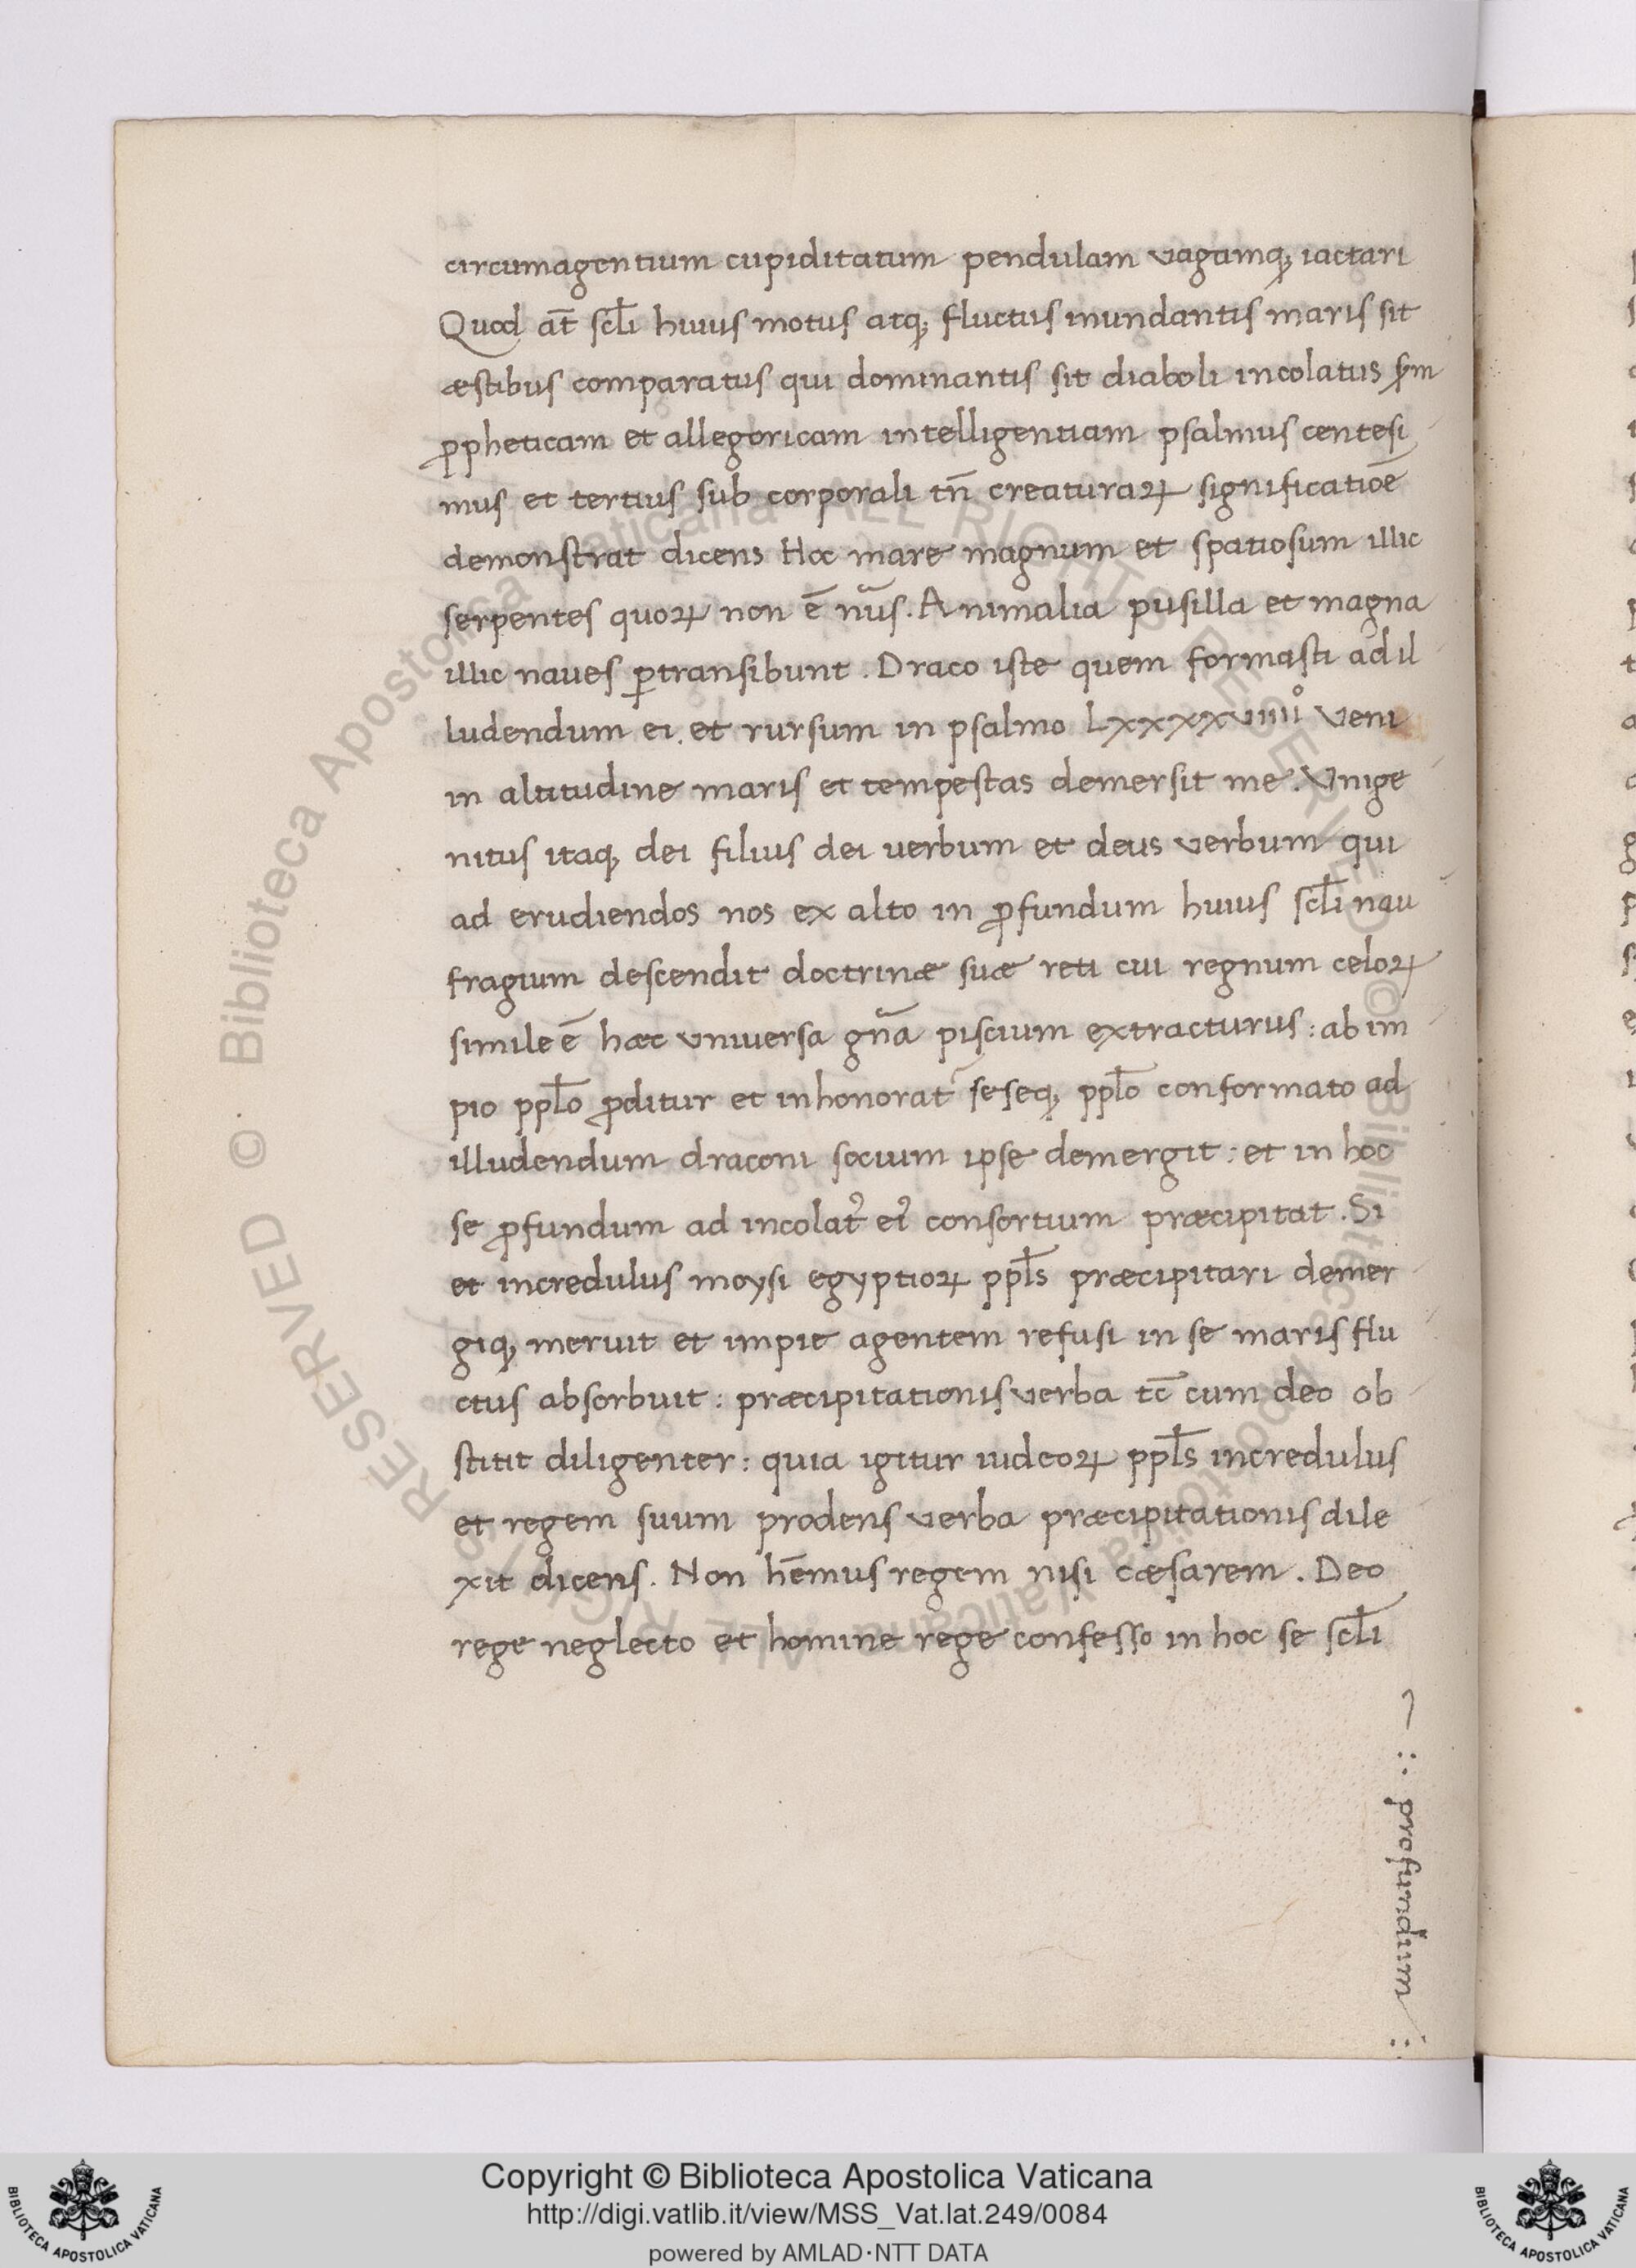 circumagentium cupiditatum pendulam vagamq; iactari
Quod at̄ scl̄i huius motus atq; fluctus inundantis maris sit
æstibus comparatus qui dominantis sit diaboli incolatus
ꝓpheticam et allegoricam intelligentiam psalmus centesi
mus et tertius sub corporali tn̄ creaturaꝝ significatioē
demonstrat dicens Hoc mare magnum et spatiosum illic
serpentes quoꝝ non ē nūs. Animalia pusilla et magna
illic naues ꝑtransibunt. Draco iste quem formasti ad il
ludendum ei. et rursum in psalmo Lxxxxviiii° veni
in altitudine maris et tempestas demersit me. Vnige
nitus itaq; dei filius dei uerbum et deus verbum qui
ad erudiendos nos ex alto in ꝓfundum huius scl̄i nau
fragium descendit doctrinæ suæ reti cui regnum celoꝝ
simile ē hæc vniuersa gn̄a piscium extracturus: ab im
pio ppl̄o ꝓditur et inhonorat᷑ seseq; ppl̄o conformato ad
illudendum draconi socium ipse demergit: et in hoc
se ꝓfundum ad incolat᾽ ei᾽ consortium præcipitat. Si
et incredulus moysi egyptioꝝ ppl̄s præcipitari demer
giq; meruit et impie agentem refusi in se maris flu
ctus absorbuit: præcipitationis verba tc̄ cum deo ob
stitit diligenter: quia igitur iudeoꝝ ppl̄s incredulus
et regem suum prodens verba præcipitationis dile
xit dicens. Non hēmus regem nisi cæsarem. Deo
rege neglecto et homine rege confesso in hoc se scl̄i
profundum
© Biblioteca Apostolica Vaticana ALL RIGHTS RESERVED
© Biblioteca Apostolica Vaticana ALL RIGHTS RESERVED
Copyright © Biblioteca Apostolica Vaticana
http://digi.vatlib.it/view/MSS_Vat.lat.249/0084
powered by AMLAD·NTT DATA
BIBLIOTECA APOSTOLICA VATICANA
BIBLIOTECA APOSTOLICA VATICANA